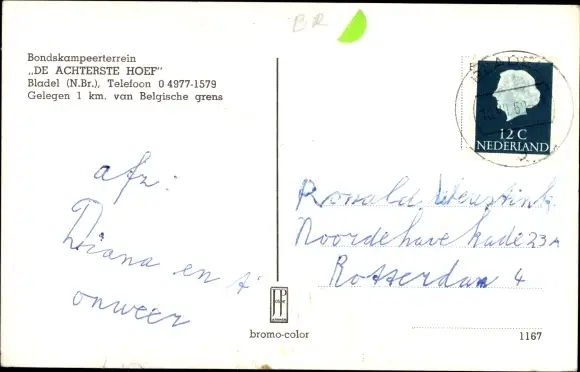 BR
Bondskampeerterrein
„DE ACHTERSTE HOEF"
Bladel (N.Br.), Telefoon 0 4977-1579
Gelegen 1 km. van Belgische grens
BLADEL
12 C
NEDERLAND
afz:
Diana en t'
onweer
Ronald
Noordehavekade 23A
Rotterdam 4
JP
bromo-color
1167